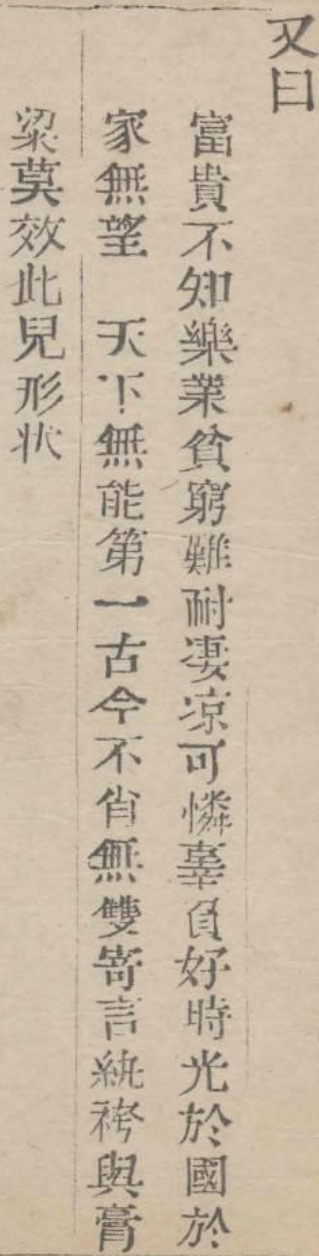 又曰
富貴不知樂業貧窮難耐凄凉可憐辜負好時光於國於
家無望　天下無能第一古今不肖無雙寄言紈袴與膏
粱莫效此兒形狀